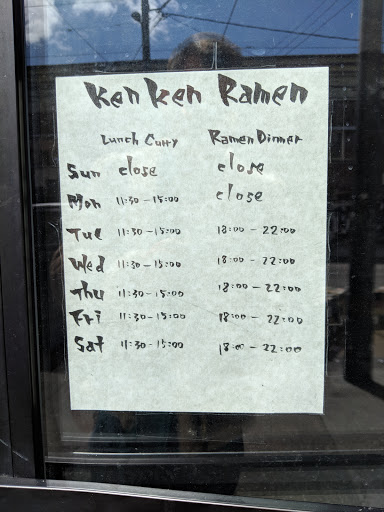 Ken Ken Ramen
Lunch Curry Ramen Dinner
Sun close close
Mon 11:30-15:00 close
Tue 11:30-15:00 18:00-22:00
Wed 11:30-15:00 18:00-22:00
Thu 11:30-15:00 18:00-22:00
Fri 11:30-15:00 18:00-22:00
Sat 11:30-15:00 18:00-22:00